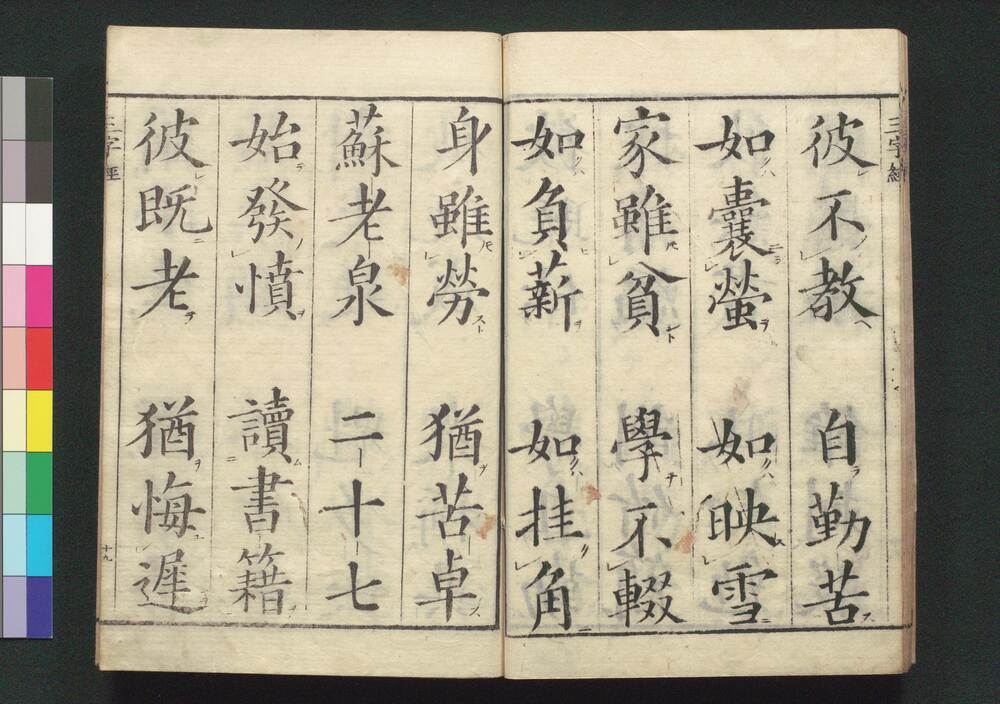 三字經
彼不教 自勤苦
如囊螢 如映雪
家雖貧 學不輟
如負薪 如挂角
身雖勞 猶苦卓
蘇老泉 二十七
始發憤 讀書籍
彼既老 猶悔遲
三字經
十九